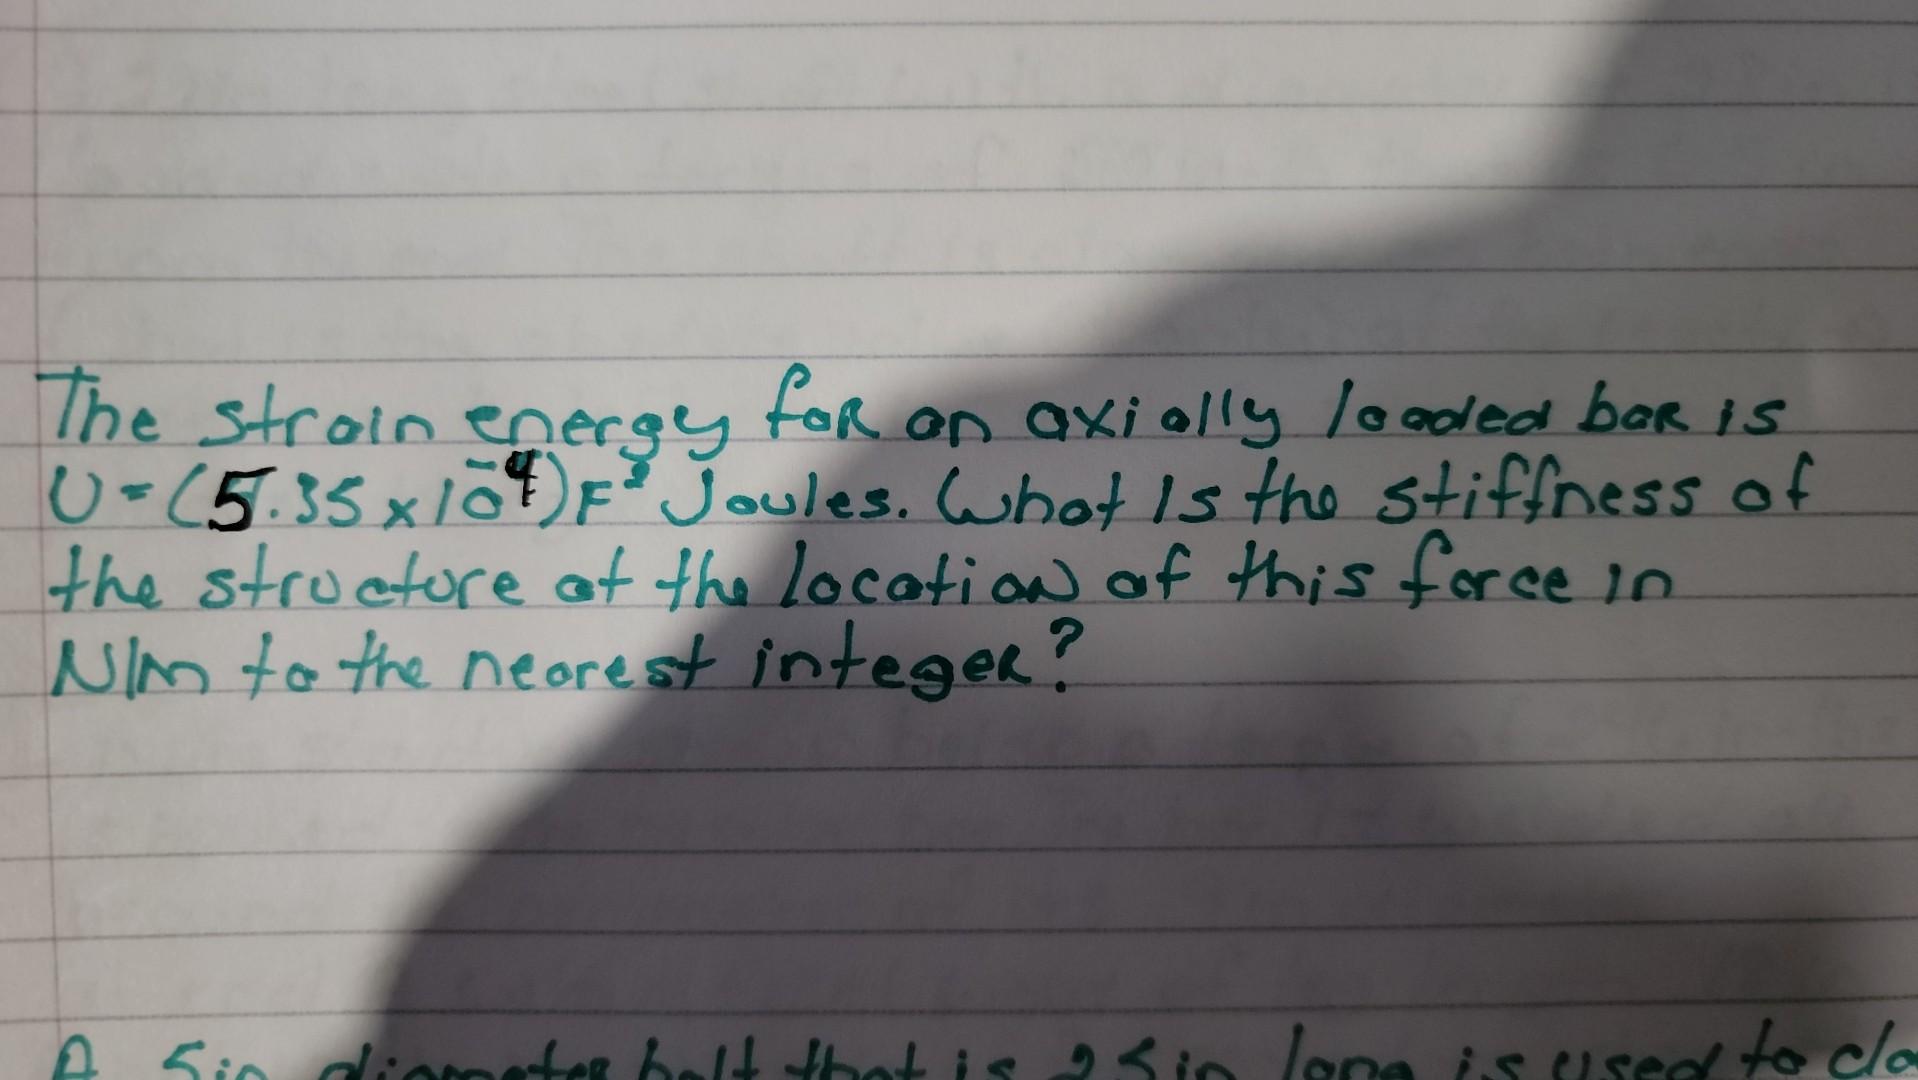 The strain energy for an axially loaded bar is
U = (5.35 x 10⁻⁴) F² Joules. What Is the stiffness of
the structure at the location of this force in
N/m to the nearest integer?
A 5in diameter bolt that is 25in long is used to cla